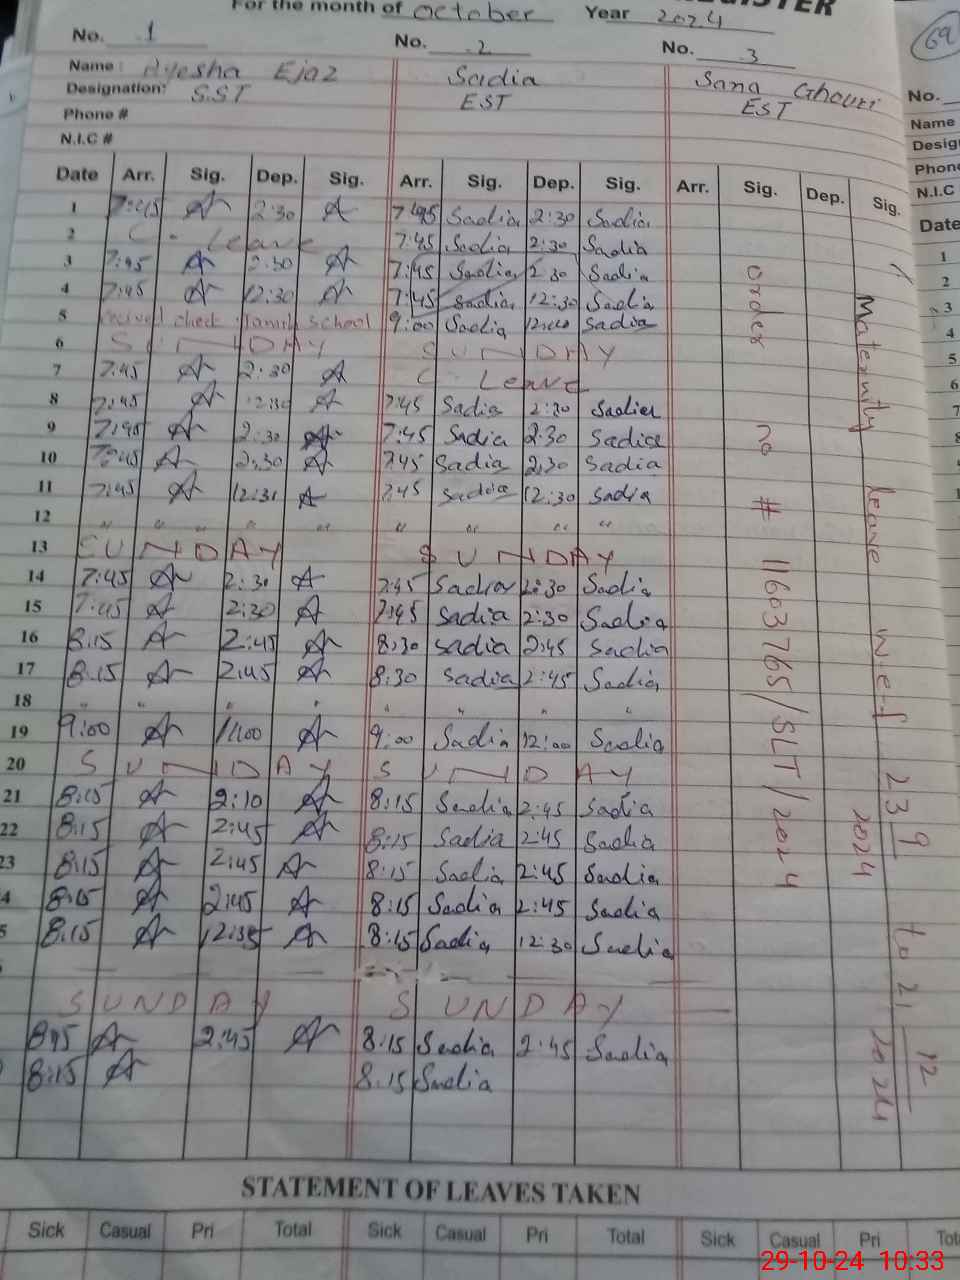 REGISTER
For the month of October Year 2024
No. 1 No. 2 No. 3
69
Name: Ayesha Ejaz Sadia Sana Ghouri
Designation: SST EST EST
Phone #
N.I.C #
No.
Name
Desig
Phone
N.I.C
Date
Date Arr. Sig. Dep. Sig. Arr. Sig. Dep. Sig. Arr. Sig. Dep. Sig.
1 7:45 A 2:30 A 7:45 Sadia 2:30 Sadia
2 C. Leave 7:45 Sadia 2:30 Sadia
3 7:45 A 2:30 A 7:45 Sadia 2:30 Sadia
4 7:45 A 12:30 A 7:45 Sadia 12:30 Sadia
5 check school 9:00 Sadia Sadia
6 SUNDAY SUNDAY
7 7:45 A 2:30 A C. Leave
8 7:45 A 2:30 A 7:45 Sadia 2:30 Sadia
9 7:45 A 2:30 A 7:45 Sadia 2:30 Sadia
10 7:45 A 2:30 A 7:45 Sadia 2:30 Sadia
11 7:45 A 12:31 A 7:45 Sadia 12:30 Sadia
12 " " " " " " " " "
13 SUNDAY SUNDAY
14 7:45 A 2:30 A 7:45 Sadia 2:30 Sadia
15 7:45 A 2:30 A 7:45 Sadia 2:30 Sadia
16 8:15 A 2:45 A 8:30 Sadia 2:45 Sadia
17 8:15 A 2:45 A 8:30 Sadia 2:45 Sadia
18 " " " " " " " "
19 9:00 A 11:00 A 9:00 Sadia 12:00 Sadia
20 SUNDAY SUNDAY
21 8:15 A 2:10 A 8:15 Sadia 2:45 Sadia
22 8:15 A 2:45 A 8:15 Sadia 2:45 Sadia
23 8:15 A 2:45 A 8:15 Sadia 2:45 Sadia
4 8:15 A 2:45 A 8:15 Sadia 2:45 Sadia
5 8:15 A 12:35 A 8:15 Sadia 12:30 Sadia
SUNDAY SUNDAY
8:15 A 2:45 A 8:15 Sadia 2:45 Sadia
8:15 A 8:15 Sadia
order no # 11603765/SLT/2024
Maternity leave w.e.f 23 9 2024 to 21 12 2024
STATEMENT OF LEAVES TAKEN
Sick Casual Pri Total Sick Casual Pri Total Sick Casual Pri Tot
29-10-24 10:33